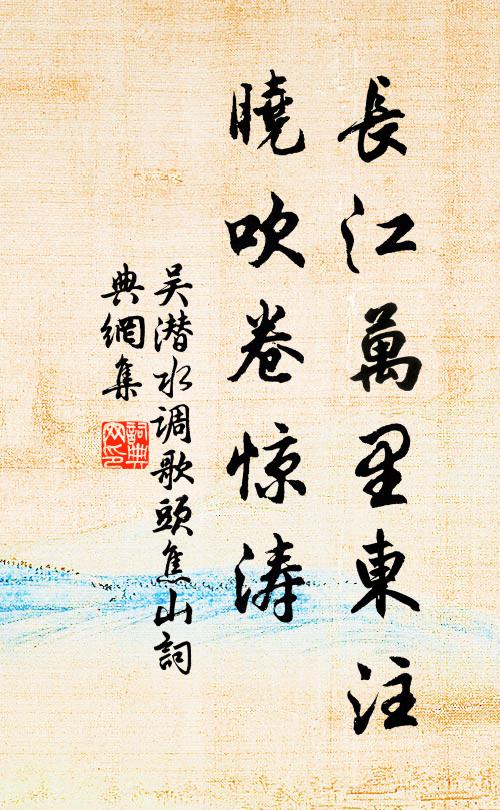 長江萬里東注
曉吹卷惊濤
吴潜水调歌頭焦山詞
典網集
詞典
网印